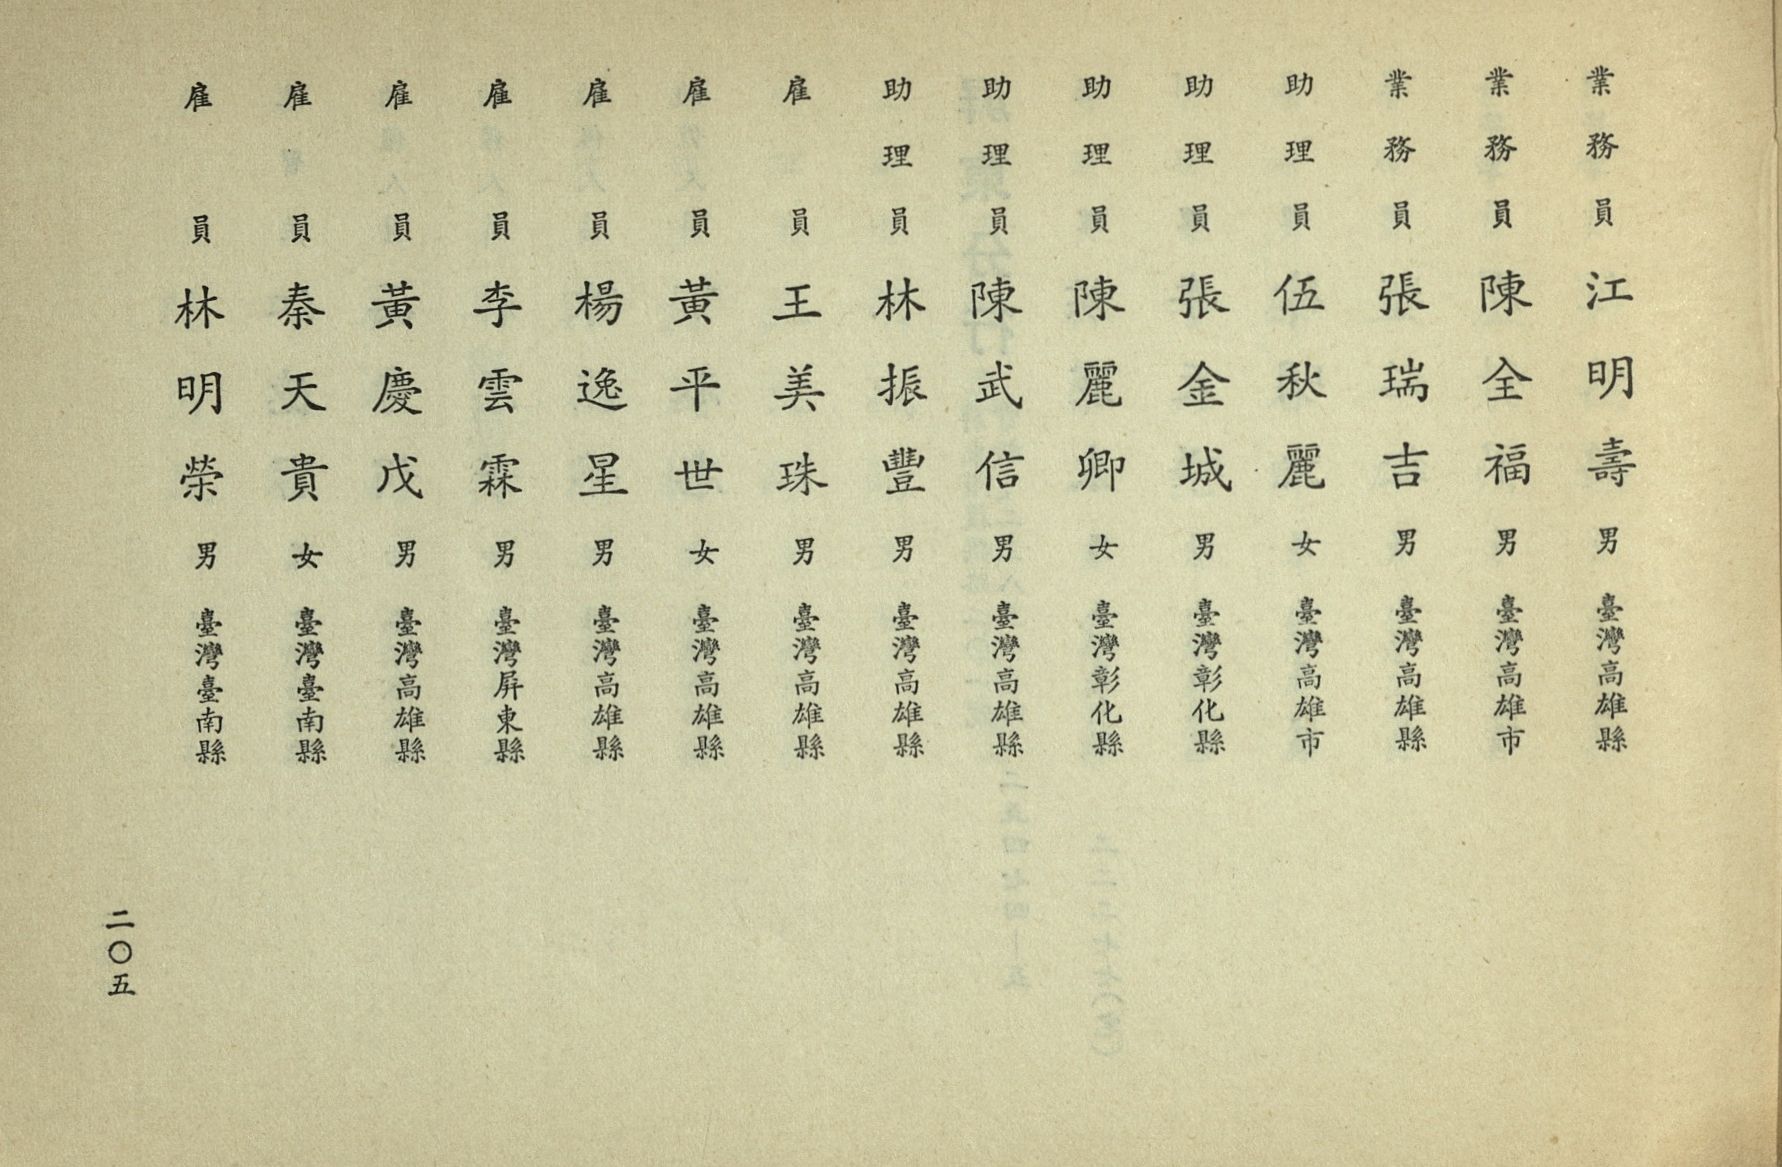 業務員 江明壽 男 臺灣高雄縣
業務員 陳全福 男 臺灣高雄市
業務員 張瑞吉 男 臺灣高雄縣
助理員 伍秋麗 女 臺灣高雄市
助理員 張金城 男 臺灣彰化縣
助理員 陳麗卿 女 臺灣彰化縣
助理員 陳武信 男 臺灣高雄縣
助理員 林振豐 男 臺灣高雄縣
雇員 王美珠 男 臺灣高雄縣
雇員 黃平世 女 臺灣高雄縣
雇員 楊逸星 男 臺灣高雄縣
雇員 李雲霖 男 臺灣屏東縣
雇員 黃慶戊 男 臺灣高雄縣
雇員 秦天貴 女 臺灣臺南縣
雇員 林明榮 男 臺灣臺南縣
二〇五